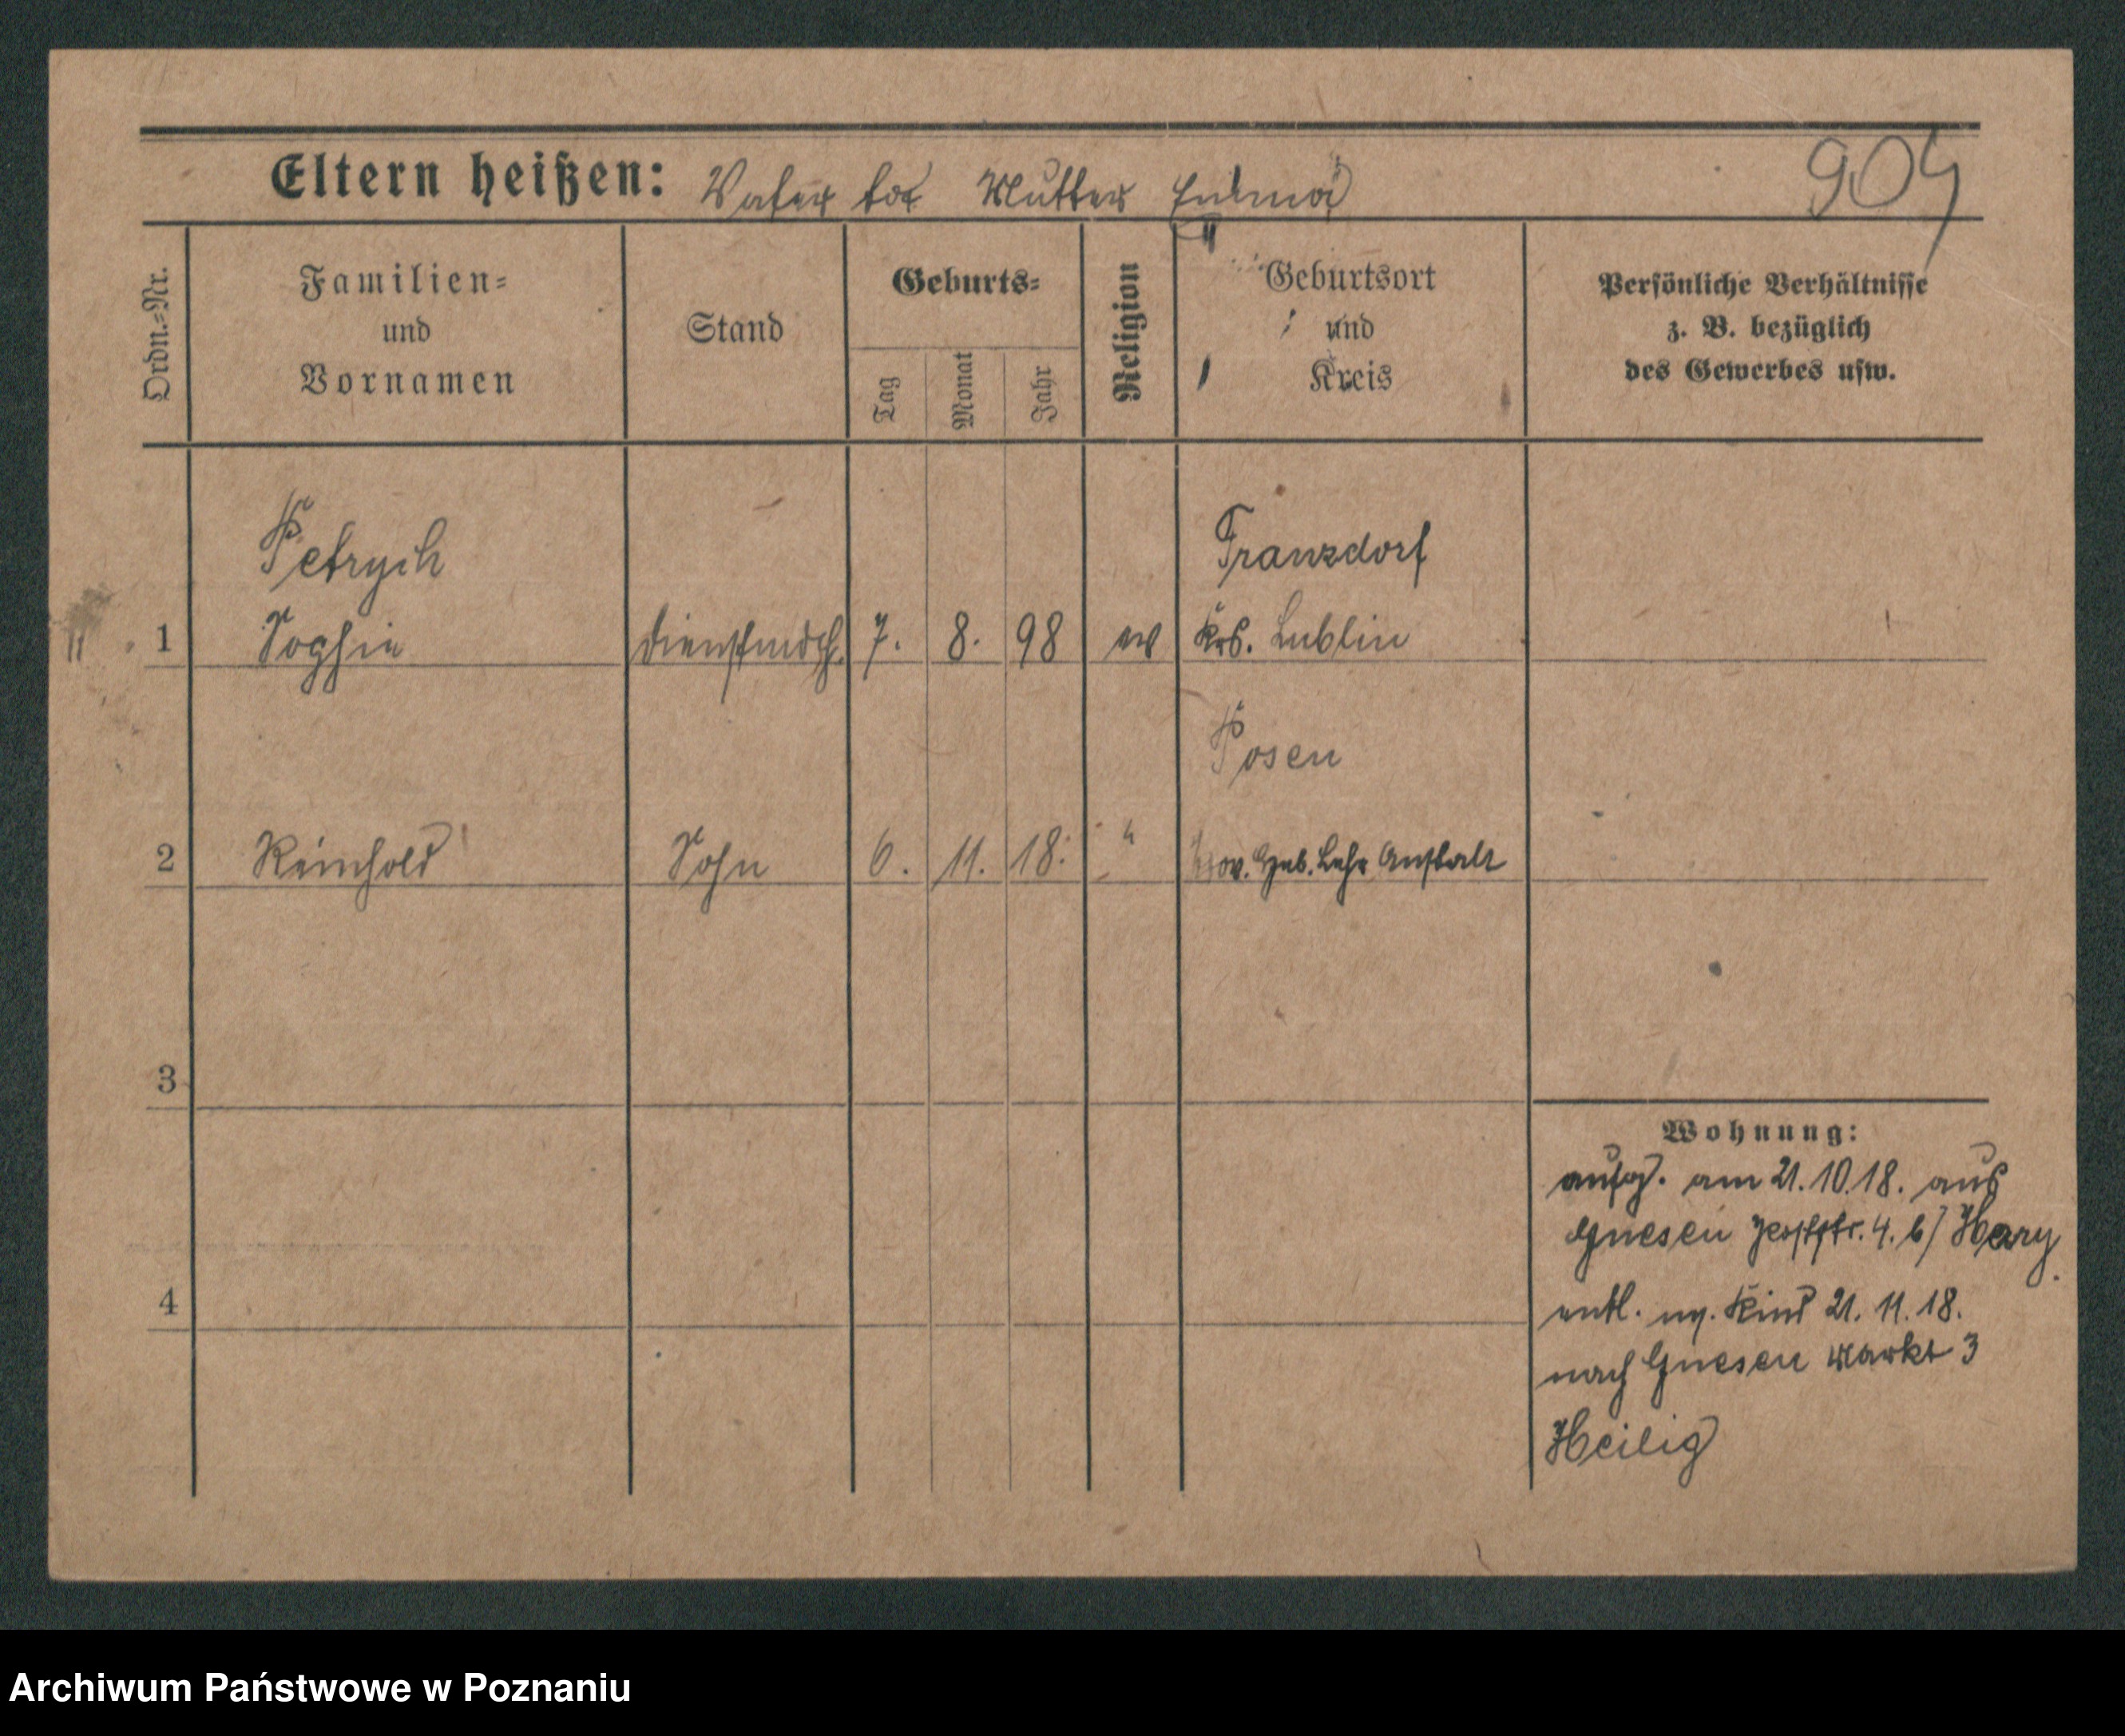 Eltern heißen: Vater tot Mutter
904
Ordn.-Nr.
Familien-
und
Vornamen
Stand
Geburts-
Tag
Monat
Jahr
Religion
Geburtsort
und
Kreis
Persönliche Verhältnisse
z. B. bezüglich
des Gewerbes usw.
Petrych
Franzdorf
1 Sophie Dienstmdch. 7. 8. 98 ev Krs. Lublin
Posen
2 Reinhold Sohn 6. 11. 18. " Prov. Heb. Lehr Anstalt
3
4
Wohnung:
aufg. am 21.10.18. aus
Gnesen 4. b/ Hery
entl. m. Kind 21. 11. 18.
nach Gnesen Markt 3
Heilig
Archiwum Państwowe w Poznaniu